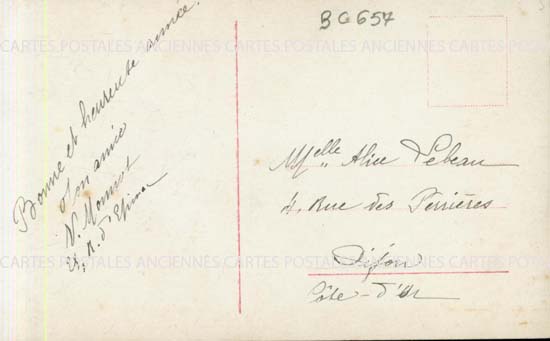 BG657
CARTES POSTALES ANCIENNES CARTES POSTALES ANCIENNES
Bonne et heureuse année
Son amie
V. Monniot
21, R. d'
Melle Alice Lebeau
4, Rue des Perrières
Dijon
Côte-d'Or
CARTES POSTALES ANCIENNES CARTES POSTALES ANCIENNES